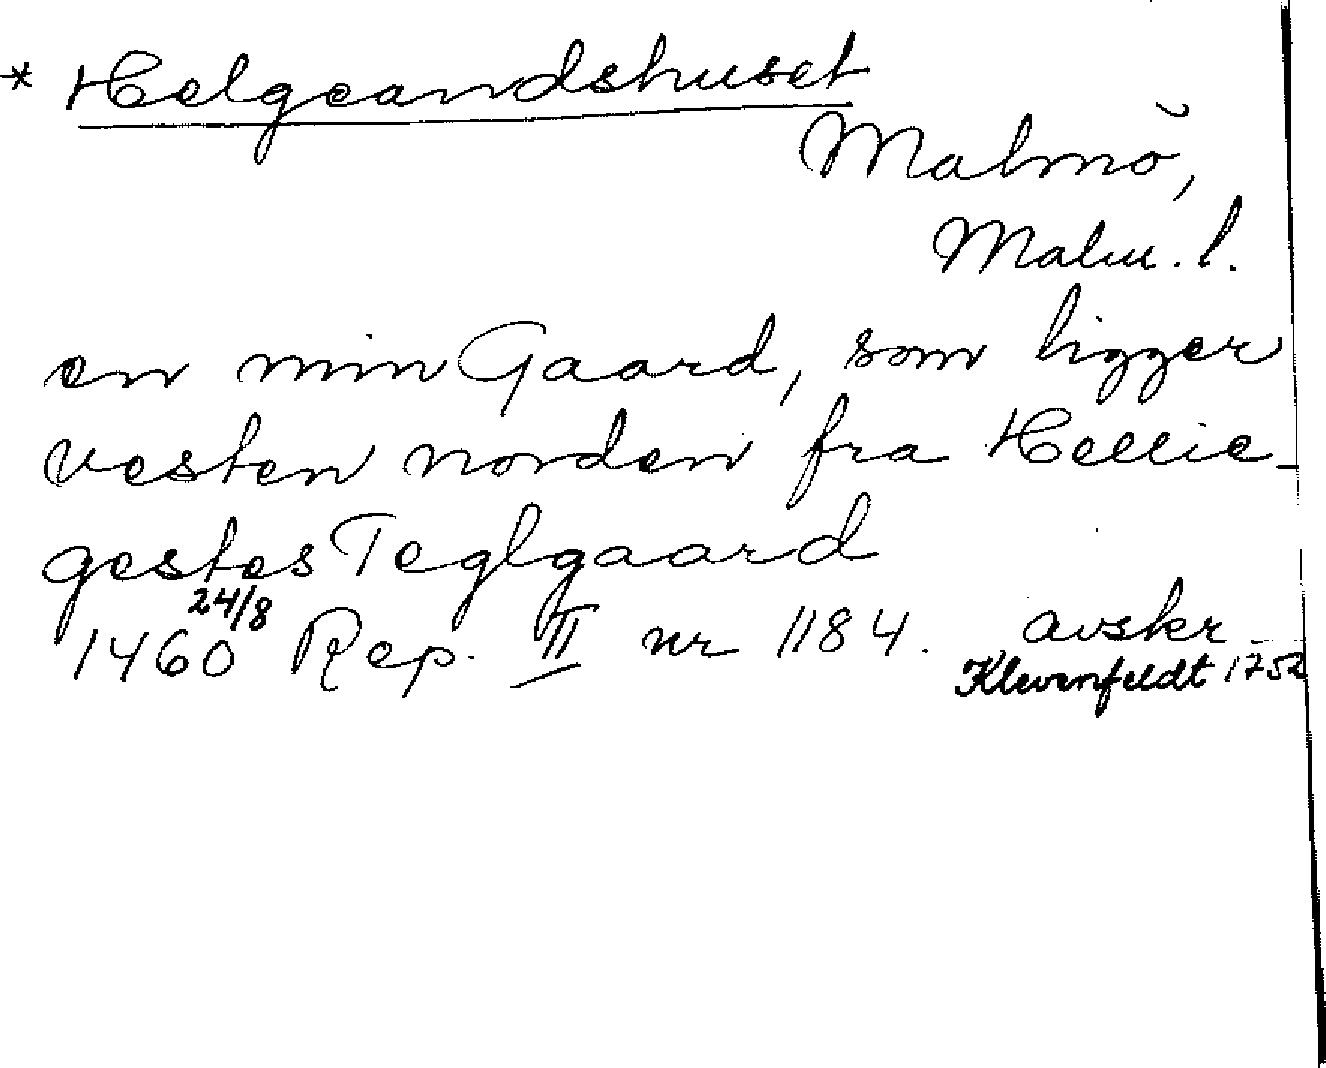 * Helgeandshuset
Malmö,
Malm. l.
en min Gaard, som ligger
vesten norden fra Hellie-
gestes Teglgaard
24/8
1460 Rep. II nr 1184. avskr
Klevenfeldt 1752